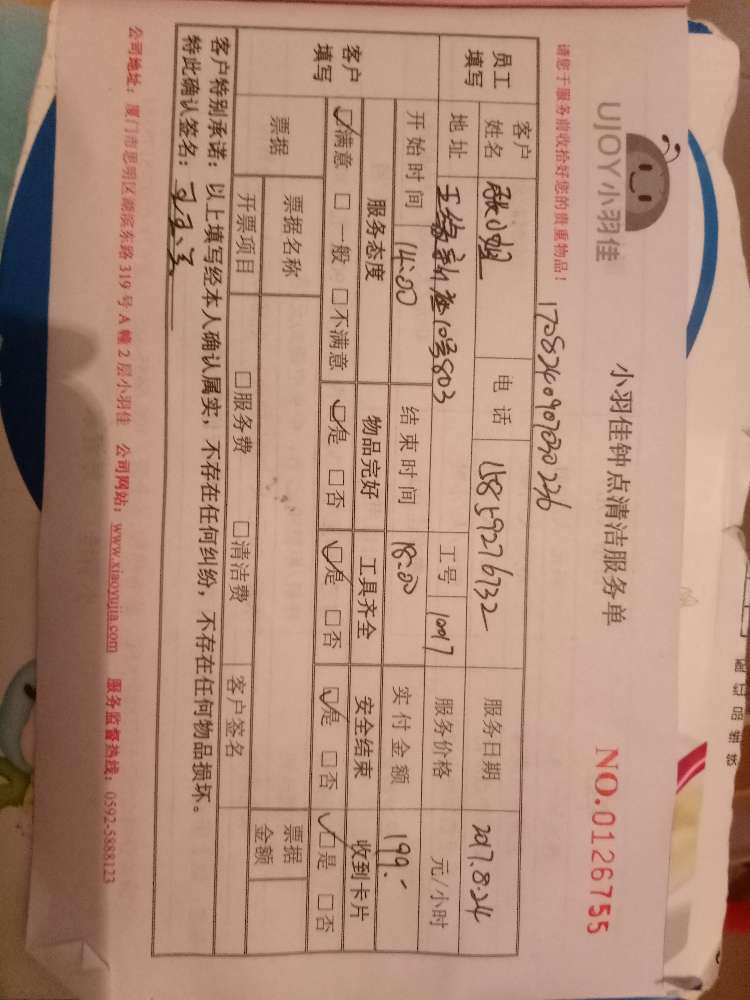 UJOY小羽佳
小羽佳钟点清洁服务单
NO.0126755
请您于服务前收拾好您的贵重物品!
1708240907030236
员工填写
客户姓名
电话 15859276732
服务日期 2017.8.24
地址 10号803
工号 10017
服务价格 元/小时
开始时间 14:00
结束时间 18:00
实付金额 199.-
客户填写
服务态度 物品完好 工具齐全 安全结束 收到卡片
☑满意 □一般 □不满意 ☑是 □否 ☑是 □否 ☑是 □否 ☑是 □否
票据 票据名称 票据金额
开票项目 □服务费 □清洁费 客户签名
客户特别承诺:以上填写经本人确认属实,不存在任何纠纷,不存在任何物品损坏。
特此确认签名:
公司地址:厦门市思明区湖滨东路319号A幢2层小羽佳 公司网站:www.xiaoyujia.com 服务监督热线:0592-5888123